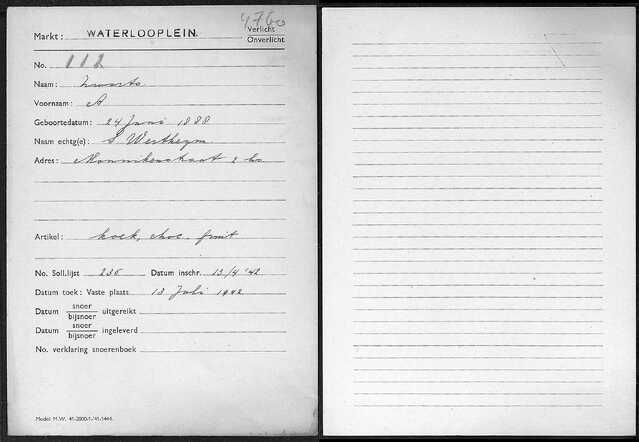 4760
Markt: WATERLOOPLEIN.
Verlicht
Onverlicht.
No. 112
Naam: Zwarts
Voornaam: A
Geboortedatum: 24 Juni 1888
Naam echtg(e): S Wertheym
Adres: Monnikenstraat 2 hs
Artikel: koek, choc. fruit
No. Soll.lijst 235 Datum inschr. 13/4 '42
Datum toek: Vaste plaats 13 Juli 1942
Datum snoer/bijsnoer uitgereikt
Datum snoer/bijsnoer ingeleverd
No. verklaring snoerenboek
Model M.W. 41-2000-1-'41-1446.